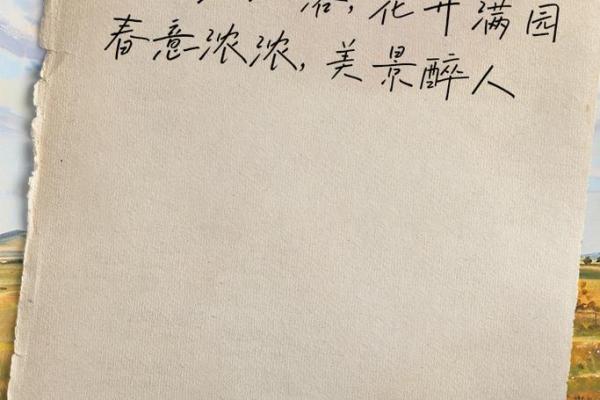 花开满园
春意浓浓,美景醉人